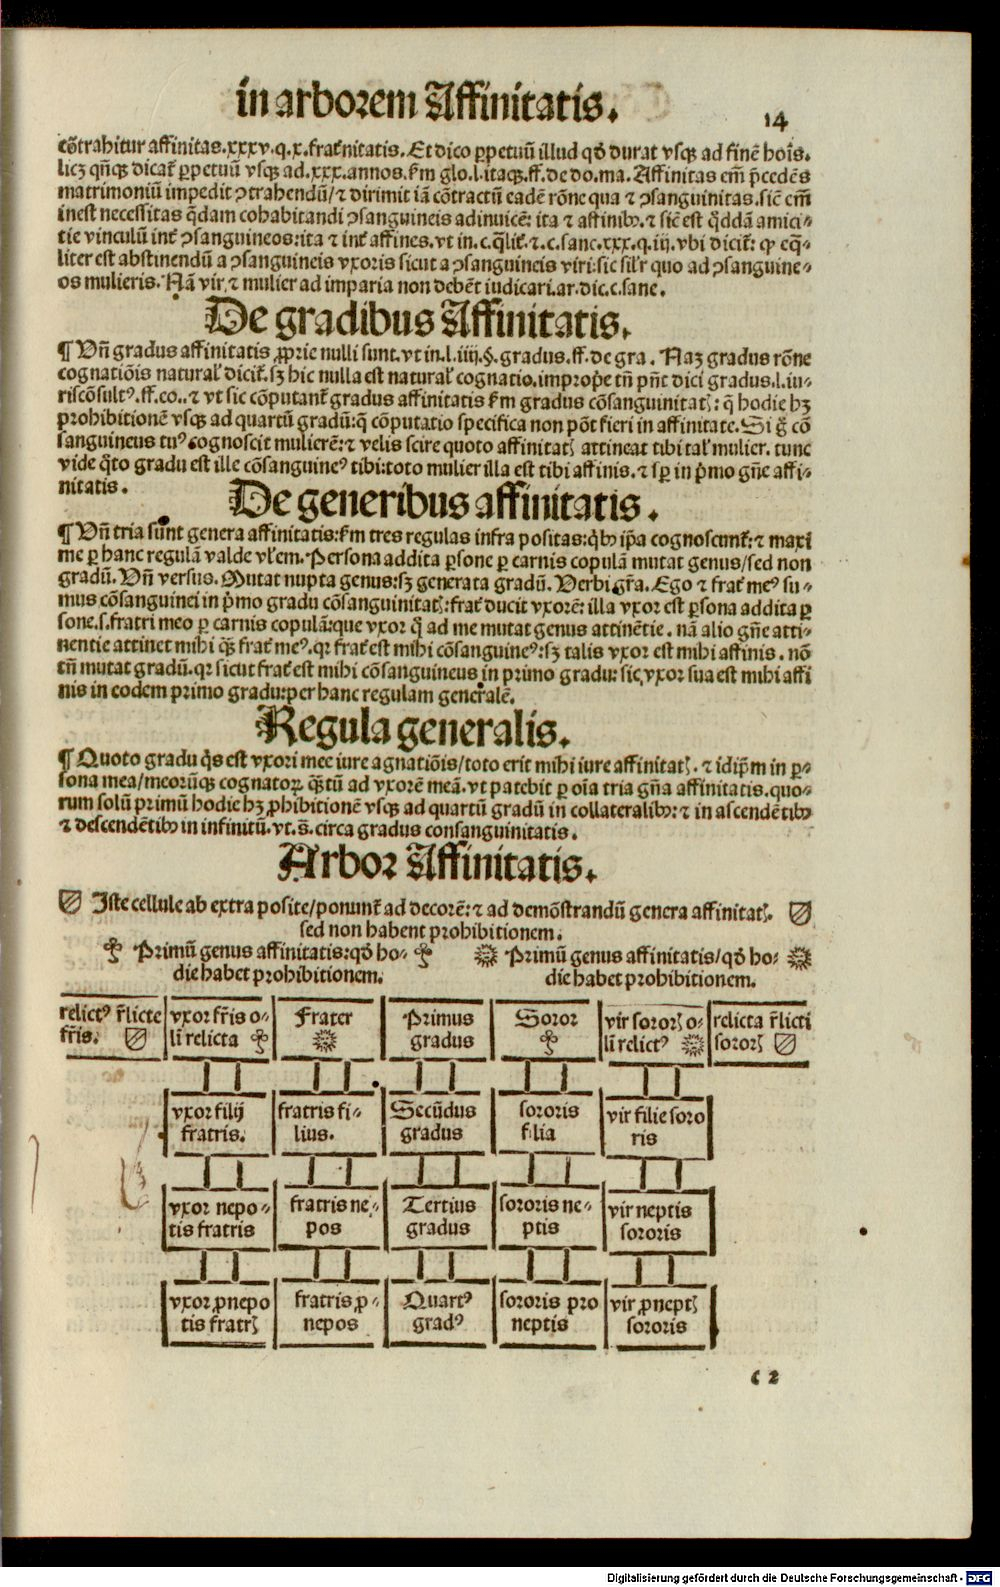 in arborem Affinitatis.
14
cōtrahitur affinitas.xxxv.q.x.frat̄nitatis. Et dico ꝑpetuū illud qđ durat vsqꝫ ad finē hoīs.
licꝫ qn̄qꝫ dicat᷑ ꝑpetuū vsqꝫ ad.xxx.annos. ẜm glo.l.itaqꝫ.ff.de do.ma. Affinitas em̄ p̄cedēs
matrimoniū impedit ꝯtrahendū/⁊ dirimit iā cōtractū eadē rōne qua ⁊ ꝯsanguinitas.sic̄ em̄
inest necessitas q̄dam cohabitandi ꝯsanguineis adinuicē: ita ⁊ affinibꝰ.⁊ sic̄ est q̄ddā amici-
tie vinculū int̄ ꝯsanguineos:ita ⁊ int̄ affines.vt in.c.q̄lit̄.⁊.c.sanc.xxx.q.iij.vbi dicit᷑: ꝙ eq̄-
liter est abstinendū a ꝯsanguineis vxoris sicut a ꝯsanguineis viri:sic sil̄r quo ad ꝯsanguine-
os mulieris. Nā vir ⁊ mulier ad imparia non debēt iudicari.ar.dic.c.sane.
De gradibus Affinitatis.
¶ Vn̄ gradus affinitatis ꝓprie nulli sunt.vt in.l.iiij.§.gradus.ff.de gra. Naꝫ gradus rōne
cognatiōis natural᷑ dicit᷑.sꝫ hic nulla est natural᷑ cognatio.improṗe tn̄ pn̄t dici gradus.l.iu-
riscōsultꝰ.ff.co..⁊ vt sic cōputant᷑ gradus affinitatis ẜm gradus cōsanguinitatꝭ: q̄ hodie hꝫ
prohibitionē vsqꝫ ad quartū gradū:q̄ cōputatio specifica non pōt fieri in affinitate. Si g̊ cō
sanguineus tuꝰ cognoscit mulierē:⁊ velis scire quoto affinitatꝭ attineat tibi tal᷑ mulier. tunc
vide q̄to gradu est ille cōsanguineꝰ tibi:toto mulier illa est tibi affinis.⁊ sꝑ in p̄mo gn̄e affi-
nitatis.
De generibus affinitatis.
¶ Vn̄ tria sunt genera affinitatis:ẜm tres regulas infra positas:q̄bꝰ ip̄a cognoscunt᷑:⁊ maxi
me ꝑ hanc regulā valde vl̄em. Persona addita ꝑsone ꝑ carnis copulā mutat genus/sed non
gradū. Vn̄ versus. Mutat nupta genus:sꝫ generata gradū. Verbi gr̄a. Ego ⁊ frat̄ meꝰ su-
mus cōsanguinei in p̄mo gradu cōsanguinitatꝭ:frat̄ ducit vxorē: illa vxor est ꝑsona addita ꝑ
sone.s.fratri meo ꝑ carnis copulā:que vxor q̄ ad me mutat genus attinētie. nā alio gn̄e atti-
nentie attinet mihi qꝫ frat̄ meꝰ.qr frat̄ est mihi cōsanguineꝰ:sꝫ talis vxor est mihi affinis. nō
tn̄ mutat gradū.qr sicut frat̄ est mihi cōsanguineus in primo gradu: sic vxor sua est mihi affi
nis in eodem primo gradu:per hanc regulam generalē.
Regula generalis.
¶ Quoto gradu q̄s est vxori mee iure agnatiōis/toto erit mihi iure affinitatꝭ. ⁊ idip̄m in ꝑ-
sona mea/meorūqꝫ cognatoꝝ qꝫtū ad vxorē meā.vt patebit ꝑ oīa tria gn̄a affinitatis.quo-
rum solū primū hodie hꝫ ꝓhibitionē vsqꝫ ad quartū gradū in collateralibꝰ:⁊ in ascendētibꝰ
⁊ descendētibꝰ in infinitū.vt.s̄.circa gradus consanguinitatis.
Arbor Affinitatis.
Iste cellule ab extra posite/ponunt᷑ ad decorē:⁊ ad demōstrandū genera affinitatꝭ.
sed non habent prohibitionem.
Primū genus affinitatis:qđ ho-
die habet prohibitionem.
Primū genus affinitatis/qđ ho-
die habet prohibitionem.
relictꝰ r̄licte fr̄is.
vxor fr̄is o-
lī relicta
Frater
Primus
gradus
Soror
vir sororꝭ o-
lī relictꝰ
relicta r̄licti
sororꝭ
vxor filij
fratris.
fratris fi-
lius.
Secūdus
gradus
sororis
filia
vir filie soro
ris
vxor nepo-
tis fratris
fratris ne-
pos
Tertius
gradus
sororis ne-
ptis
vir neptis
sororis
vxor ꝓnepo
tis fratrꝭ
fratris ꝓ-
nepos
Quartꝰ
gradꝰ
sororis pro
neptis
vir ꝓneptꝭ
sororis
c 2
Digitalisierung gefördert durch die Deutsche Forschungsgemeinschaft - DFG